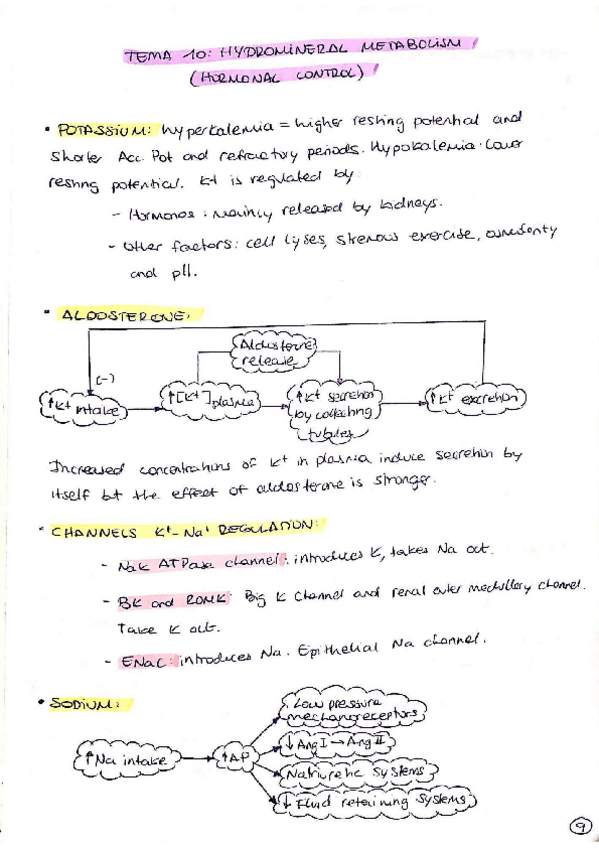 TEMA 10: HYDROMINERAL METABOLISM
(HORMONAL CONTROL)
• POTASSIUM: hyperkalemia = higher resting potential and
shorter Acc. Pot and refractory periods. Hypokalemia: lower
resting potential. K+ is regulated by:
- Hormones: mainly released by kidneys.
- Other factors: cell lyses, strenous exercise, osmolarity
and pH.
• ALDOSTERONE:
Aldosterone
release
(-)
↑K+ intake
↑[K+] plasma
↑K+ secretion
by collecting
tubules
↑K+ excretion
Increased concentrations of K+ in plasma induce secretion by
itself but the effect of aldosterone is stronger.
• CHANNELS K+-Na+ REGULATION:
- NaK ATPase channel: introduces K, takes Na out.
- BK and ROMK: Big K channel and renal outer medullery channel.
Take K out.
- ENaC: introduces Na. Epithelial Na channel.
• SODIUM:
Low pressure
mechanoreceptors
↑Na intake
↑AP
↓Ang I → Ang II
Natriuretic systems
↓ Fluid retaining systems
9